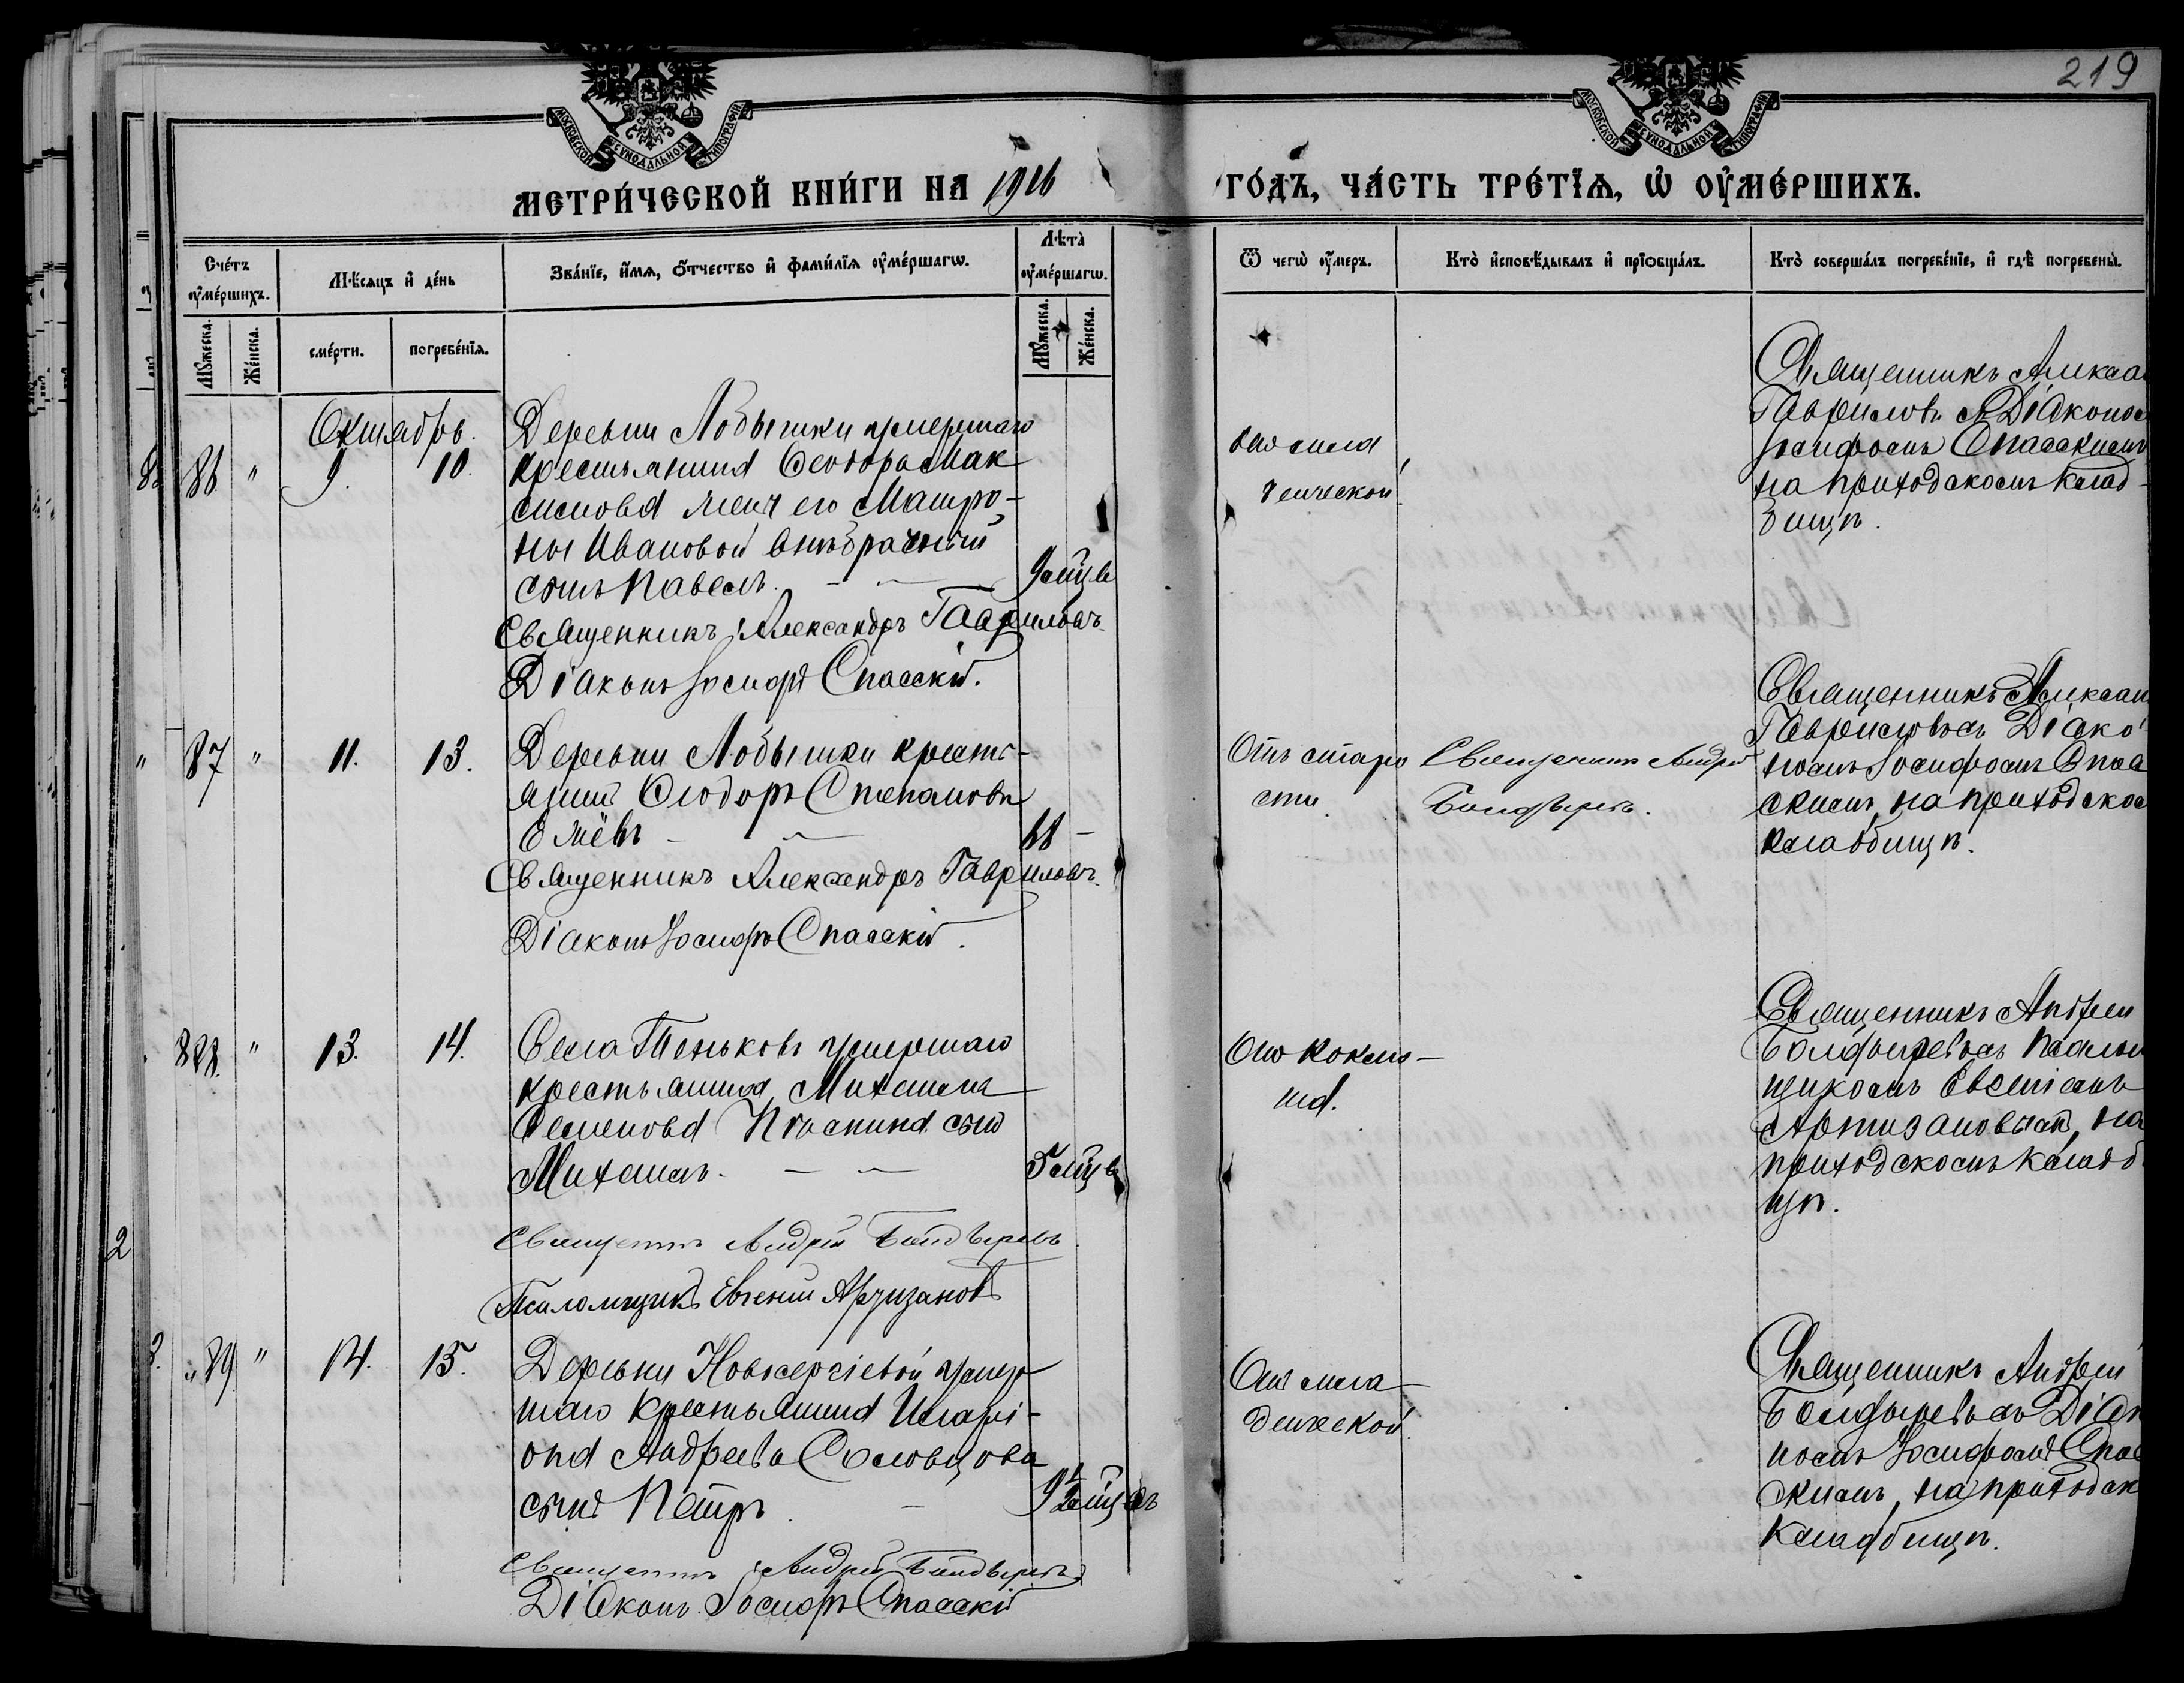 219
МОСКОВСКОЙ СѴНОДАЛЬНОЙ ТИПОГРАФІИ
МОСКОВСКОЙ СѴНОДАЛЬНОЙ ТИПОГРАФІИ
МЕТРИ́ЧЕСКОЙ КНИ́ГИ НА 1916 ГО́ДЪ, ЧА́СТЬ ТРЕ́ТЇѦ, Ѡ҆ ОУ҆МЕ́РШИХЪ.
Сче́тъ оу҆ме́ршихъ.
Мꙋ́жеска.
Же́нска.
Мѣ́сяцъ и҆ де́нь
сме́рти.
погребе́нїѧ.
Зва́нїе, и҆́мѧ, ѻ҆́тчество и҆ фами́лїѧ оу҆ме́ршагѡ.
Лѣ́та оу҆ме́ршагѡ.
Мꙋ́жеска.
Же́нска.
Ѿ чегѡ̀ оу҆́меръ.
Кто̀ и҆сповѣ́дывалъ и҆ прїѻбща́лъ.
Кто̀ соверша́лъ погребе́нїе, и҆ гдѣ̀ погребены̀.
Октябрь.
86 " 9. 10.
Деревни Лобышки умершаго
крестьянина Ѳеодора Мак
симова жены его Матро-
ны Ивановой внѣбрачный
сынъ Павелъ. 9 мѣсцв
Священникъ Александръ Гавриловъ
Діаконъ Іосифъ Спасскій.
младенческой
Священникъ Алексан
Гавриловъ съ Діаконом
Іосифомъ Спасскимъ
на приходскомъ клад
бищѣ.
" 87 " 11. 13.
Деревни Лобышки кресть-
янинъ Ѳеодоръ Степановъ
68 -
Священникъ Александръ Гавриловъ.
Діаконъ Іосифъ Спасскій.
Отъ старо
сти.
Священникъ Андрей
Болдыревъ.
Священникъ Алексан
Гавриловъ съ Діако
номъ Іосифомъ Спас
скимъ, на приходском
кладбищѣ.
88. " 13. 14.
Села Теньковъ умершаго
крестьянина Михаила
Семенова сынъ
Михаилъ. 5 мѣсцв
Священникъ Андрей Болдыревъ
Псаломщикъ Евгеній Артизановъ
Отъ коклю-
ша.
Священникъ Андрей
Болдыревъ съ Псалом
щикомъ Евгеніемъ
Артизановымъ, на
приходскомъ кладб
щѣ.
89 " 14. 15.
Деревни Новосергіевой умер
шаго крестьянина Иларі-
она Андреева Соловцова
сынъ Петръ. 9½ мѣсцвъ
Священникъ Андрей Болдыревъ
Діаконъ Іосифъ Спасскій
Отъ мла
денческой.
Священникъ Андрей
Болдыревъ съ Діак
номъ Іосифомъ Спас
скимъ, на приходск
кладбищѣ.